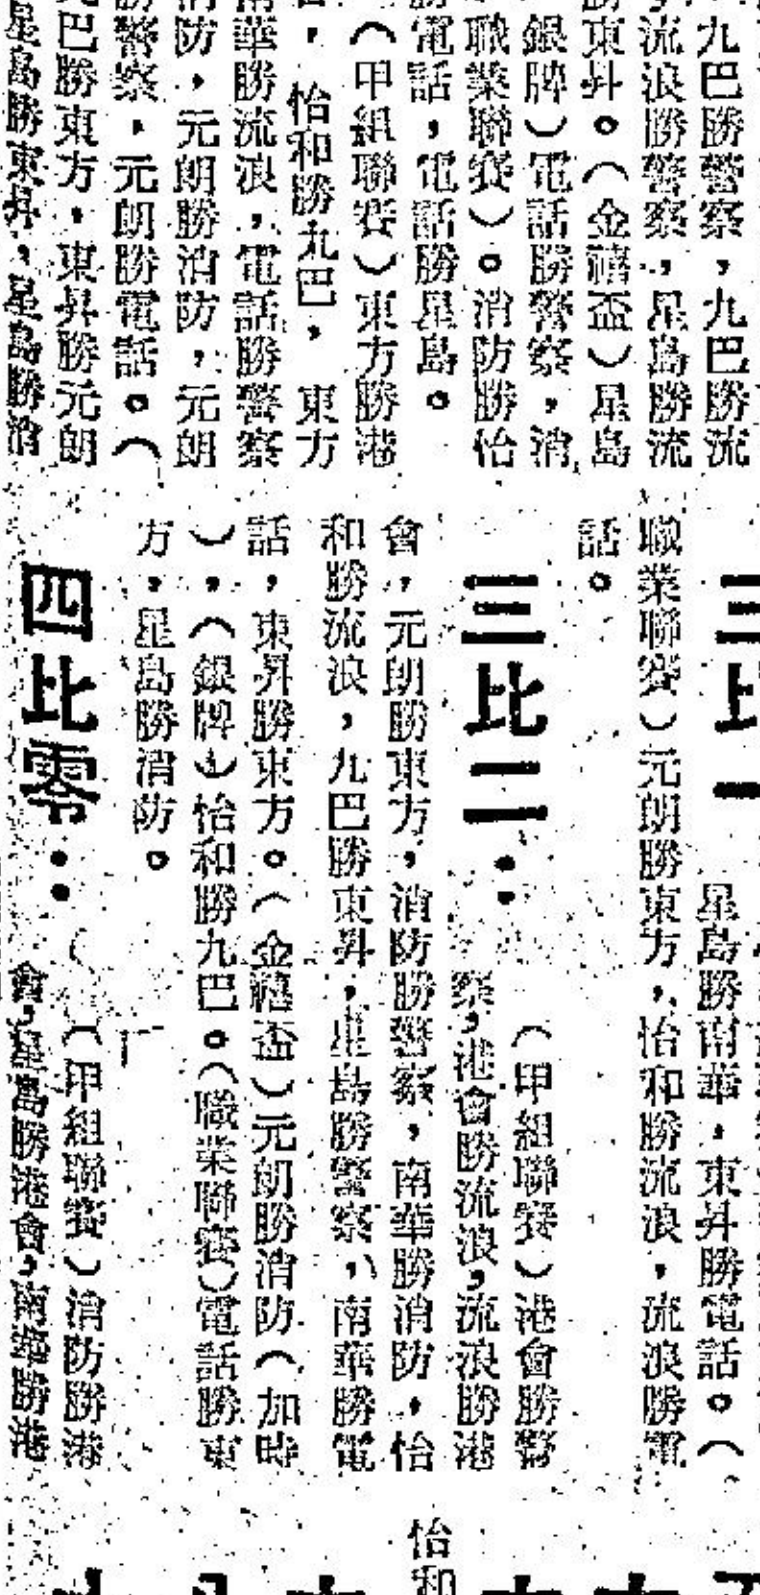 九巴勝警察，九巴勝流
流浪勝警察，星島勝流
勝東昇。（金禧盃）星島
銀牌）電話勝警察，消
職業聯賽）。消防勝怡
電話，電話勝星島。
（甲組聯賽）東方勝港
，怡和勝九巴，東方
南華勝流浪，電話勝警察
消防，元朗勝消防，元朗
勝警察，元朗勝電話。（
巴勝東方，東昇勝元朗
星島勝東昇，星島勝消
三比一
星島勝南華，東昇勝電話。（
職業聯賽）元朗勝東方，怡和勝流浪，流浪勝電
話。
三比二：
（甲組聯賽）港會勝警
察，港會勝流浪，流浪勝港
會，元朗勝東方，消防勝警察，南華勝消防，怡
和勝流浪，九巴勝東昇，星島勝警察，南華勝電
話，東昇勝東方。（金禧盃）元朗勝消防（加時
），（銀牌）怡和勝九巴。（職業聯賽）電話勝東
方，星島勝消防。
四比零：
（甲組聯賽）消防勝港
會，星島勝港會，南華勝港
怡和